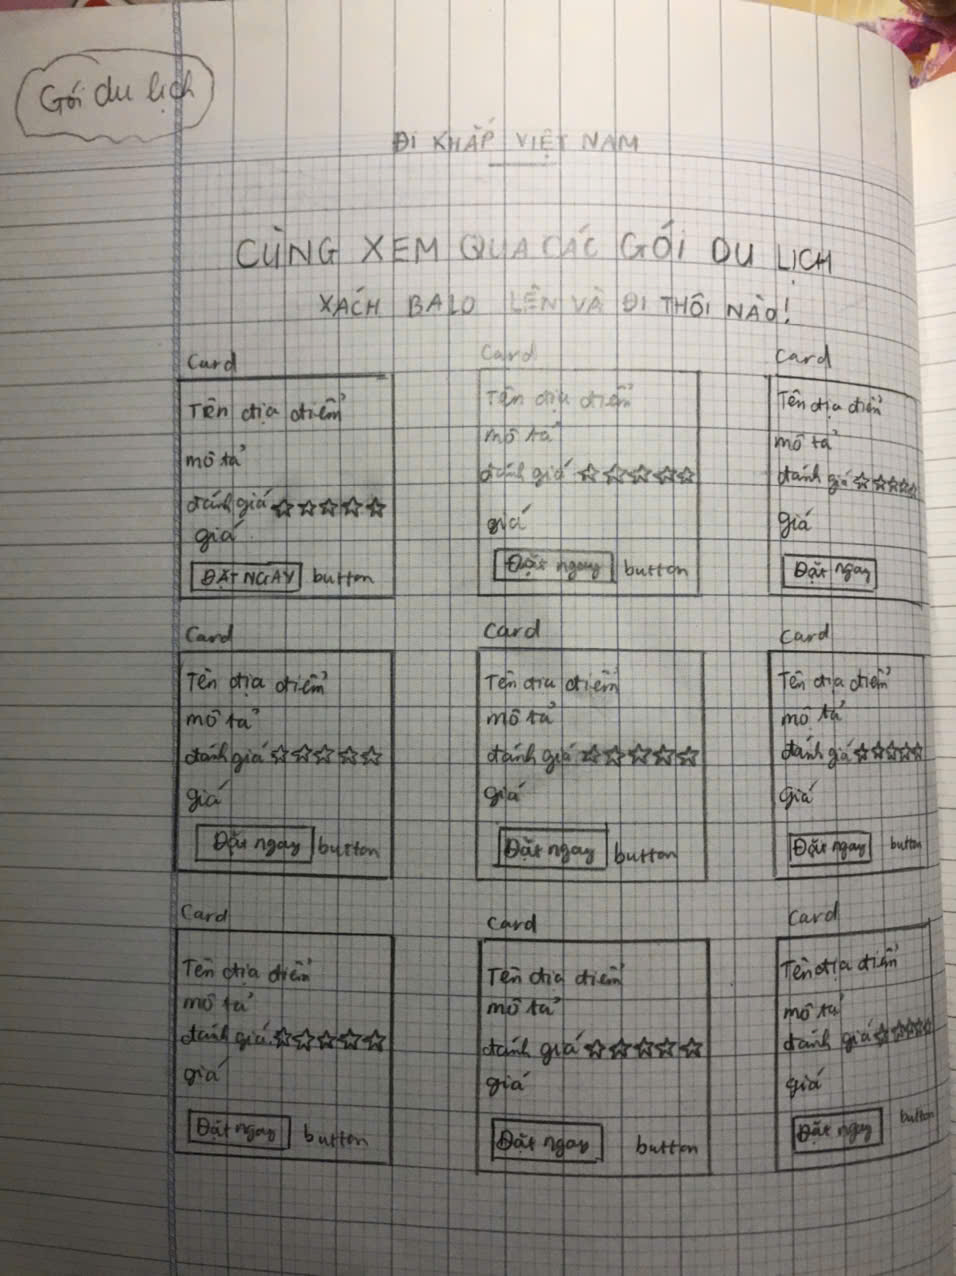 Gói du lịch
ĐI KHẮP VIỆT NAM
CÙNG XEM QUA CÁC GÓI DU LỊCH
XÁCH BALO LÊN VÀ ĐI THÔI NÀO!
Card
Tên địa điểm
mô tả
đánh giá ☆☆☆☆☆
giá
ĐẶT NGAY button
Card
Tên địa điểm
mô tả
đánh giá ☆☆☆☆☆
giá
Đặt ngay button
Card
Tên địa điểm
mô tả
đánh giá ☆☆☆☆☆
giá
Đặt ngay
Card
Tên địa điểm
mô tả
đánh giá ☆☆☆☆☆
giá
Đặt ngay button
Card
Tên địa điểm
mô tả
đánh giá ☆☆☆☆☆
giá
Đặt ngay button
Card
Tên địa điểm
mô tả
đánh giá ☆☆☆☆☆
giá
Đặt ngay button
Card
Tên địa điểm
mô tả
đánh giá ☆☆☆☆☆
giá
Đặt ngay button
Card
Tên địa điểm
mô tả
đánh giá ☆☆☆☆☆
giá
Đặt ngay button
Card
Tên địa điểm
mô tả
đánh giá ☆☆☆☆☆
giá
Đặt ngay button